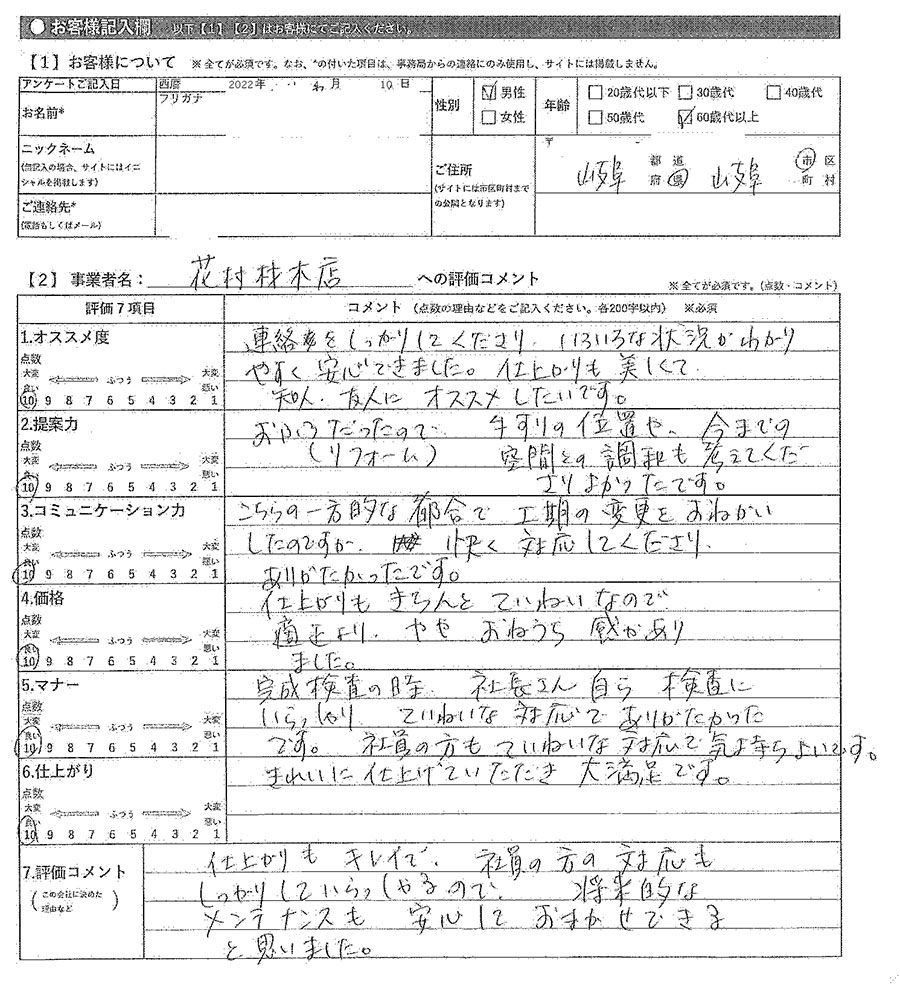 ● お客様記入欄 以下【1】【2】はお客様にてご記入ください。
【1】お客様について ※ 全てが必須です。なお、*の付いた項目は、事務局からの連絡にのみ使用し、サイトには掲載しません。
アンケートご記入日 西暦 2022年 月 10日
性別 ☑男性 □女性
年齢 □20歳代以下 □30歳代 □40歳代
□50歳代 ☑60歳代以上
お名前* フリガナ
ニックネーム
(無記入の場合、サイトにはイニ
シャルを掲載します)
ご住所
(サイトには市区町村まで
の公開となります)
〒
岐阜 都道府県 岐阜 市区町村
ご連絡先*
(電話もしくはメール)
【2】事業者名： 花村材木店 への評価コメント
※ 全てが必須です。(点数・コメント)
評価７項目 コメント (点数の理由などをご記入ください。各200字以内) ※必須
1.オススメ度
点数
大変良い ふつう 大変悪い
10 9 8 7 6 5 4 3 2 1
連絡をしっかりしてくださり、いろいろな状況がわかり
やすく安心できました。仕上がりも美しくて
知人、友人に オススメしたいです。
2.提案力
点数
大変良い ふつう 大変悪い
10 9 8 7 6 5 4 3 2 1
おふろだったので、手すりの位置や、今までの
(リフォーム) 空間との調和も考えてくだ
さりよかったです。
3.コミュニケーション力
点数
大変良い ふつう 大変悪い
10 9 8 7 6 5 4 3 2 1
こちらの一方的な都合で工期の変更をおねがい
したのですが、快く対応してくださり、
ありがたかったです。
4.価格
点数
大変良い ふつう 大変悪い
10 9 8 7 6 5 4 3 2 1
仕上がりもきちんとていねいなので
適正より、ややおねうち感があり
ました。
5.マナー
点数
大変良い ふつう 大変悪い
10 9 8 7 6 5 4 3 2 1
完成検査の時、社長さん自ら検査に
いらっしゃり、ていねいな対応でありがたかった
です。社員の方もていねいな対応で気持ちよいです。
6.仕上がり
点数
大変良い ふつう 大変悪い
10 9 8 7 6 5 4 3 2 1
きれいに仕上げていただき大満足です。
7.評価コメント
(この会社に決めた
理由など)
仕上がりもキレイで、社員の方の対応も
しっかりしていらっしゃるので、将来的な
メンテナンスも安心しておまかせできる
と思いました。